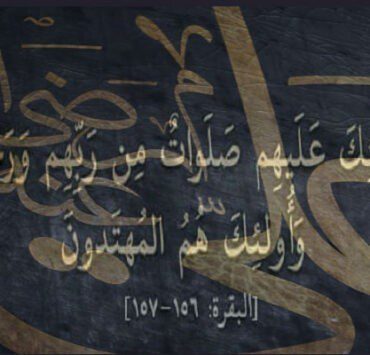 عَلَيهِم صَلَوَاتٌ مِن رَبِّهِم
وَأُولَئِكَ هُمُ المُهتَدونَ
[البقرة: ١٥٦-١٥٧]